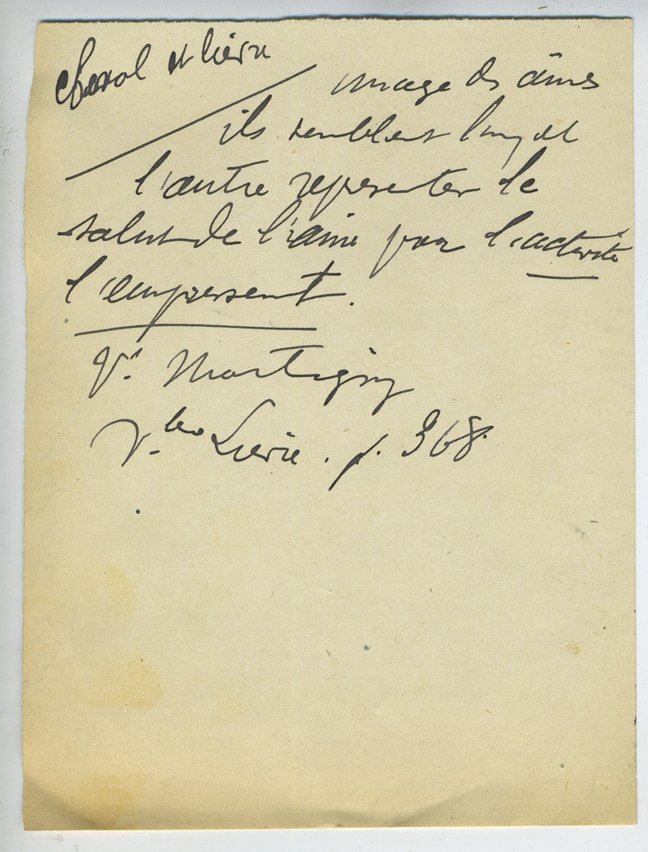 cheval et lièvre
image des âmes
ils semblent l'un et
l'autre représenter le
salut de l'âme par l'activité
l'empressement.
Vr. Martigny
Vbo Lièvre. p. 368.